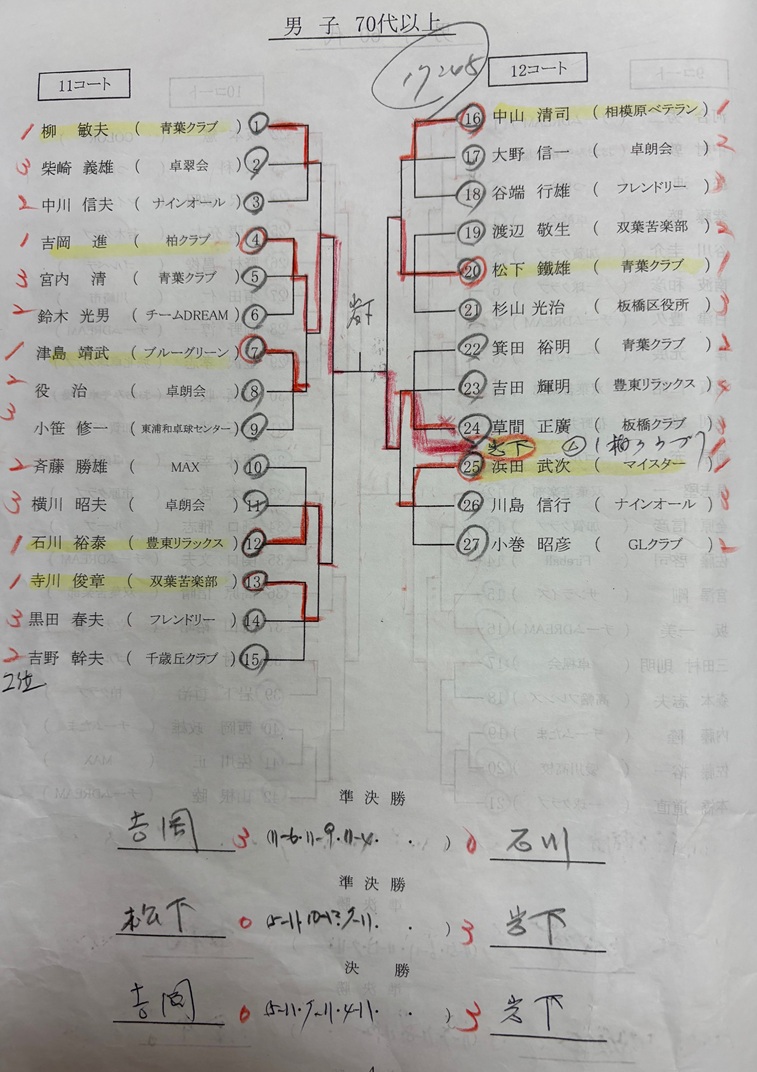 男 子 70代以上
11コート
12コート
1 柳 敏夫 ( 青葉クラブ ) 1
3 柴崎 義雄 ( 卓翠会 ) 2
2 中川 信夫 ( ナインオール ) 3
1 吉岡 進 ( 柏クラブ ) 4
3 宮内 清 ( 青葉クラブ ) 5
2 鈴木 光男 ( チームDREAM ) 6
1 津島 靖武 ( ブルーグリーン ) 7
2 役 治 ( 卓朗会 ) 8
3 小笹 修一 ( 東浦和卓球センター ) 9
2 斉藤 勝雄 ( MAX ) 10
3 横川 昭夫 ( 卓朗会 ) 11
1 石川 裕泰 ( 豊東リラックス ) 12
1 寺川 俊章 ( 双葉苦楽部 ) 13
3 黒田 春夫 ( フレンドリー ) 14
2 吉野 幹夫 ( 千歳丘クラブ ) 15
2位
岩下
16 中山 清司 ( 相模原ベテラン ) 1
17 大野 信一 ( 卓朗会 ) 2
18 谷端 行雄 ( フレンドリー ) 3
19 渡辺 敬生 ( 双葉苦楽部 ) 2
20 松下 鐵雄 ( 青葉クラブ ) 1
21 杉山 光治 ( 板橋区役所 ) 3
22 箕田 裕明 ( 青葉クラブ ) 2
23 吉田 輝明 ( 豊東リラックス )
24 草間 正廣 ( 板橋クラブ )
岩下 (柏クラブ)
25 浜田 武次 ( マイスター ) 1
26 川島 信行 ( ナインオール ) 3
27 小巻 昭彦 ( GLクラブ ) 2
準 決 勝
吉岡 3 (11-6・11-9・11-4・ ・ ) 0 石川
準 決 勝
松下 0 (5-11・10-12・5-11・ ・ ) 3 岩下
決 勝
吉岡 0 (5-11・5-11・4-11・ ・ ) 3 岩下